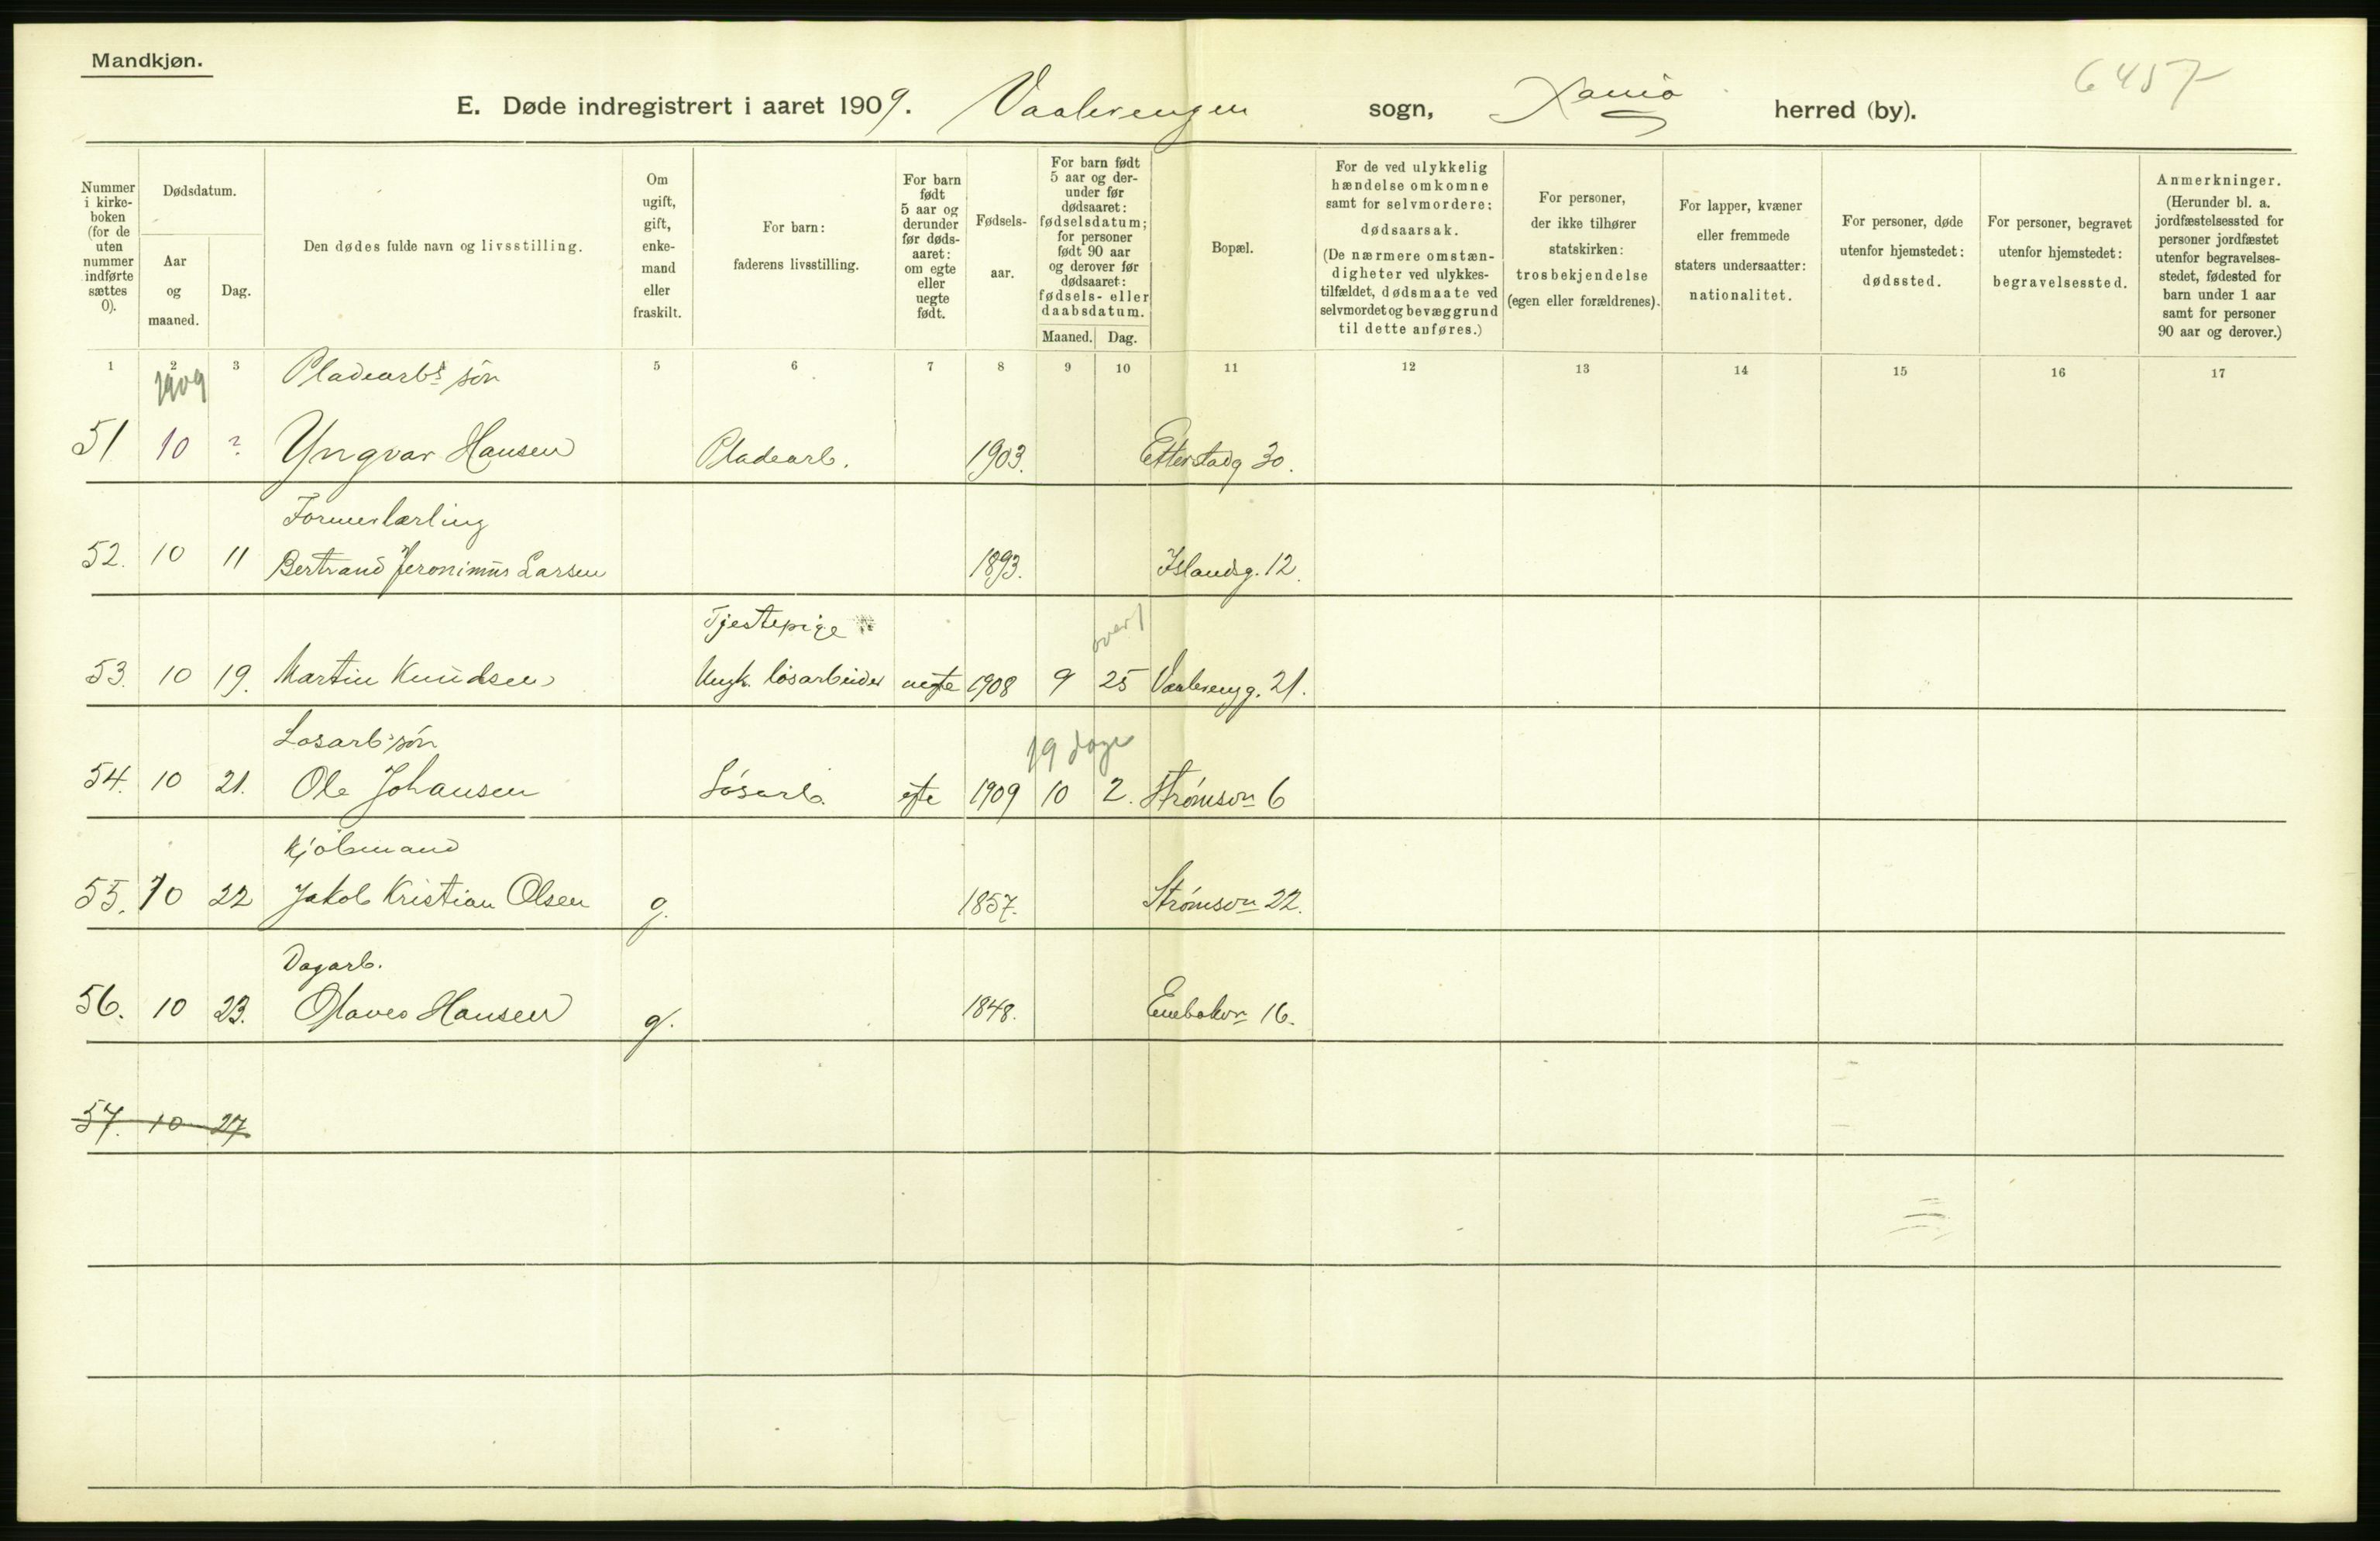 Mandkjøn.
6457
E. Døde indregistrert i aaret 1909. Vaalerengen sogn, Xania herred (by).
Nummer i kirke-boken (for de uten nummer indførte sættes 0).
Dødsdatum.
Aar og maaned.
Dag.
Den dødes fulde navn og livsstilling.
Om ugift, gift, enke-mand eller fraskilt.
For barn: faderens livsstilling.
For barn født 5 aar og derunder før døds-aaret: om egte eller uegte født.
Fødsels-aar.
For barn født 5 aar og der-under før dødsaaret: fødselsdatum; for personer født 90 aar og derover før dødsaaret: fødsels- eller daabsdatum.
Maaned. Dag.
Bopæl.
For de ved ulykkelig hændelse omkomne samt for selvmordere: dødsaarsak. (De nærmere omstæn-digheter ved ulykkes-tilfældet, dødsmaate ved selvmordet og bevæggrund til dette anføres.)
For personer, der ikke tilhører statskirken: trosbekjendelse (egen eller forældrenes).
For lapper, kvæner eller fremmede staters undersaatter: nationalitet.
For personer, døde utenfor hjemstedet: dødssted.
For personer, begravet utenfor hjemstedet: begravelsessted.
Anmerkninger. (Herunder bl. a. jordfæstelsessted for personer jordfæstet utenfor begravelses-stedet, fødested for barn under 1 aar samt for personer 90 aar og derover.)
1 2 3 5 6 7 8 9 10 11 12 13 14 15 16 17
1909 Pladearbs søn
51 10 ? Yngvar Hansen Pladearb. 1903. Etterstadg 30.
Formerlærling
52. 10 11 Bertrand Jeronimus Larsen 1893. Islandsg. 12.
Tjestepige over 1
53. 10 19. Martin Knudsen Ungk. løsarbeider uegte 1908 9 25 Vaalereng g. 21.
Løsarb søn 19 dage
54. 10 21. Ole Johansen Løsarb. egte 1909 10 2. Strømsvn 6
Kjølsmand
55. 10 22 Jakob Kristian Olsen g. 1857. Strømsvn 22.
Dagarb.
56. 10 23. Olaves Hansen g. 1848. Enebakvn 16.
57. 10 27